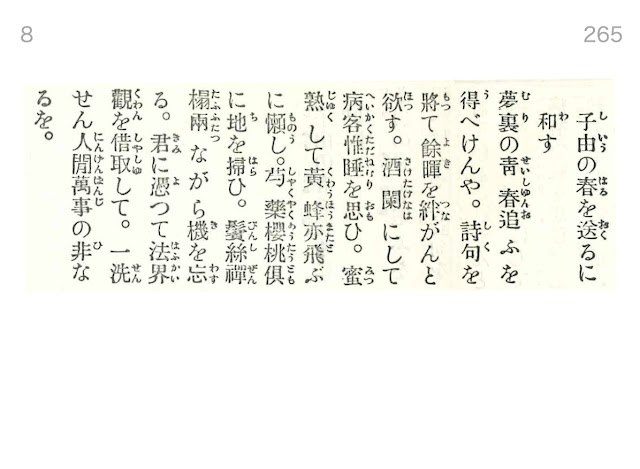 8
265
子由の春を送るに
和す
夢裏の靑春追ふを
得べけんや。詩句を
將て餘暉を絆がんと
欲す。酒闌にして
病客惟睡を思ひ。蜜
熟して黃蜂亦飛ぶ
に懶し。芍藥櫻桃俱
に地を掃ひ。鬢絲禪
榻兩ながら機を忘
る。君に憑つて法界
觀を借取して。一洗
せん人閒萬事の非な
るを。